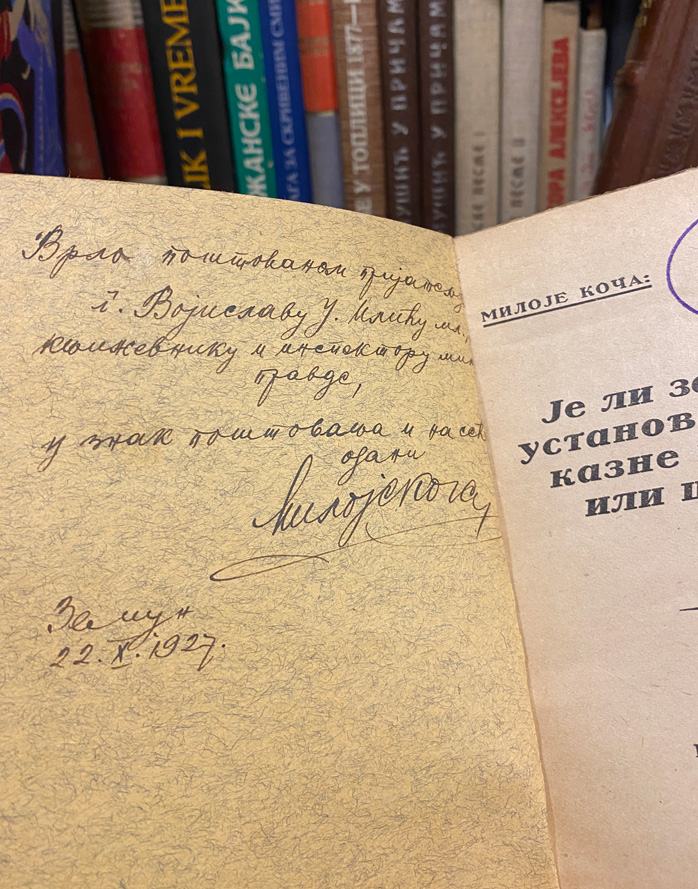 ІК І VREME
ЖАНСКЕ БАЈК
АГА ЗА СКРИВЕНИМ СМИ
Е У ТОПЛИЦИ 1877—
УШИЋ У ПРИЧАМ
УЧИЋ У ПРИЧАМ
СКЕ ПЕСМЕ I
ПЕСМЕ II
ОРА АЛЕКСИЈЕВА
Врло поштованом пријатељу
г. Војиславу Ј. Илићу мл.,
књижевнику и инспектору мин
правде,
у знак поштовања и
одани
Милоје Коча
Земун
22. X. 1927.
МИЛОЈЕ КОЧА:
Је ли зе
установ
казне
или п